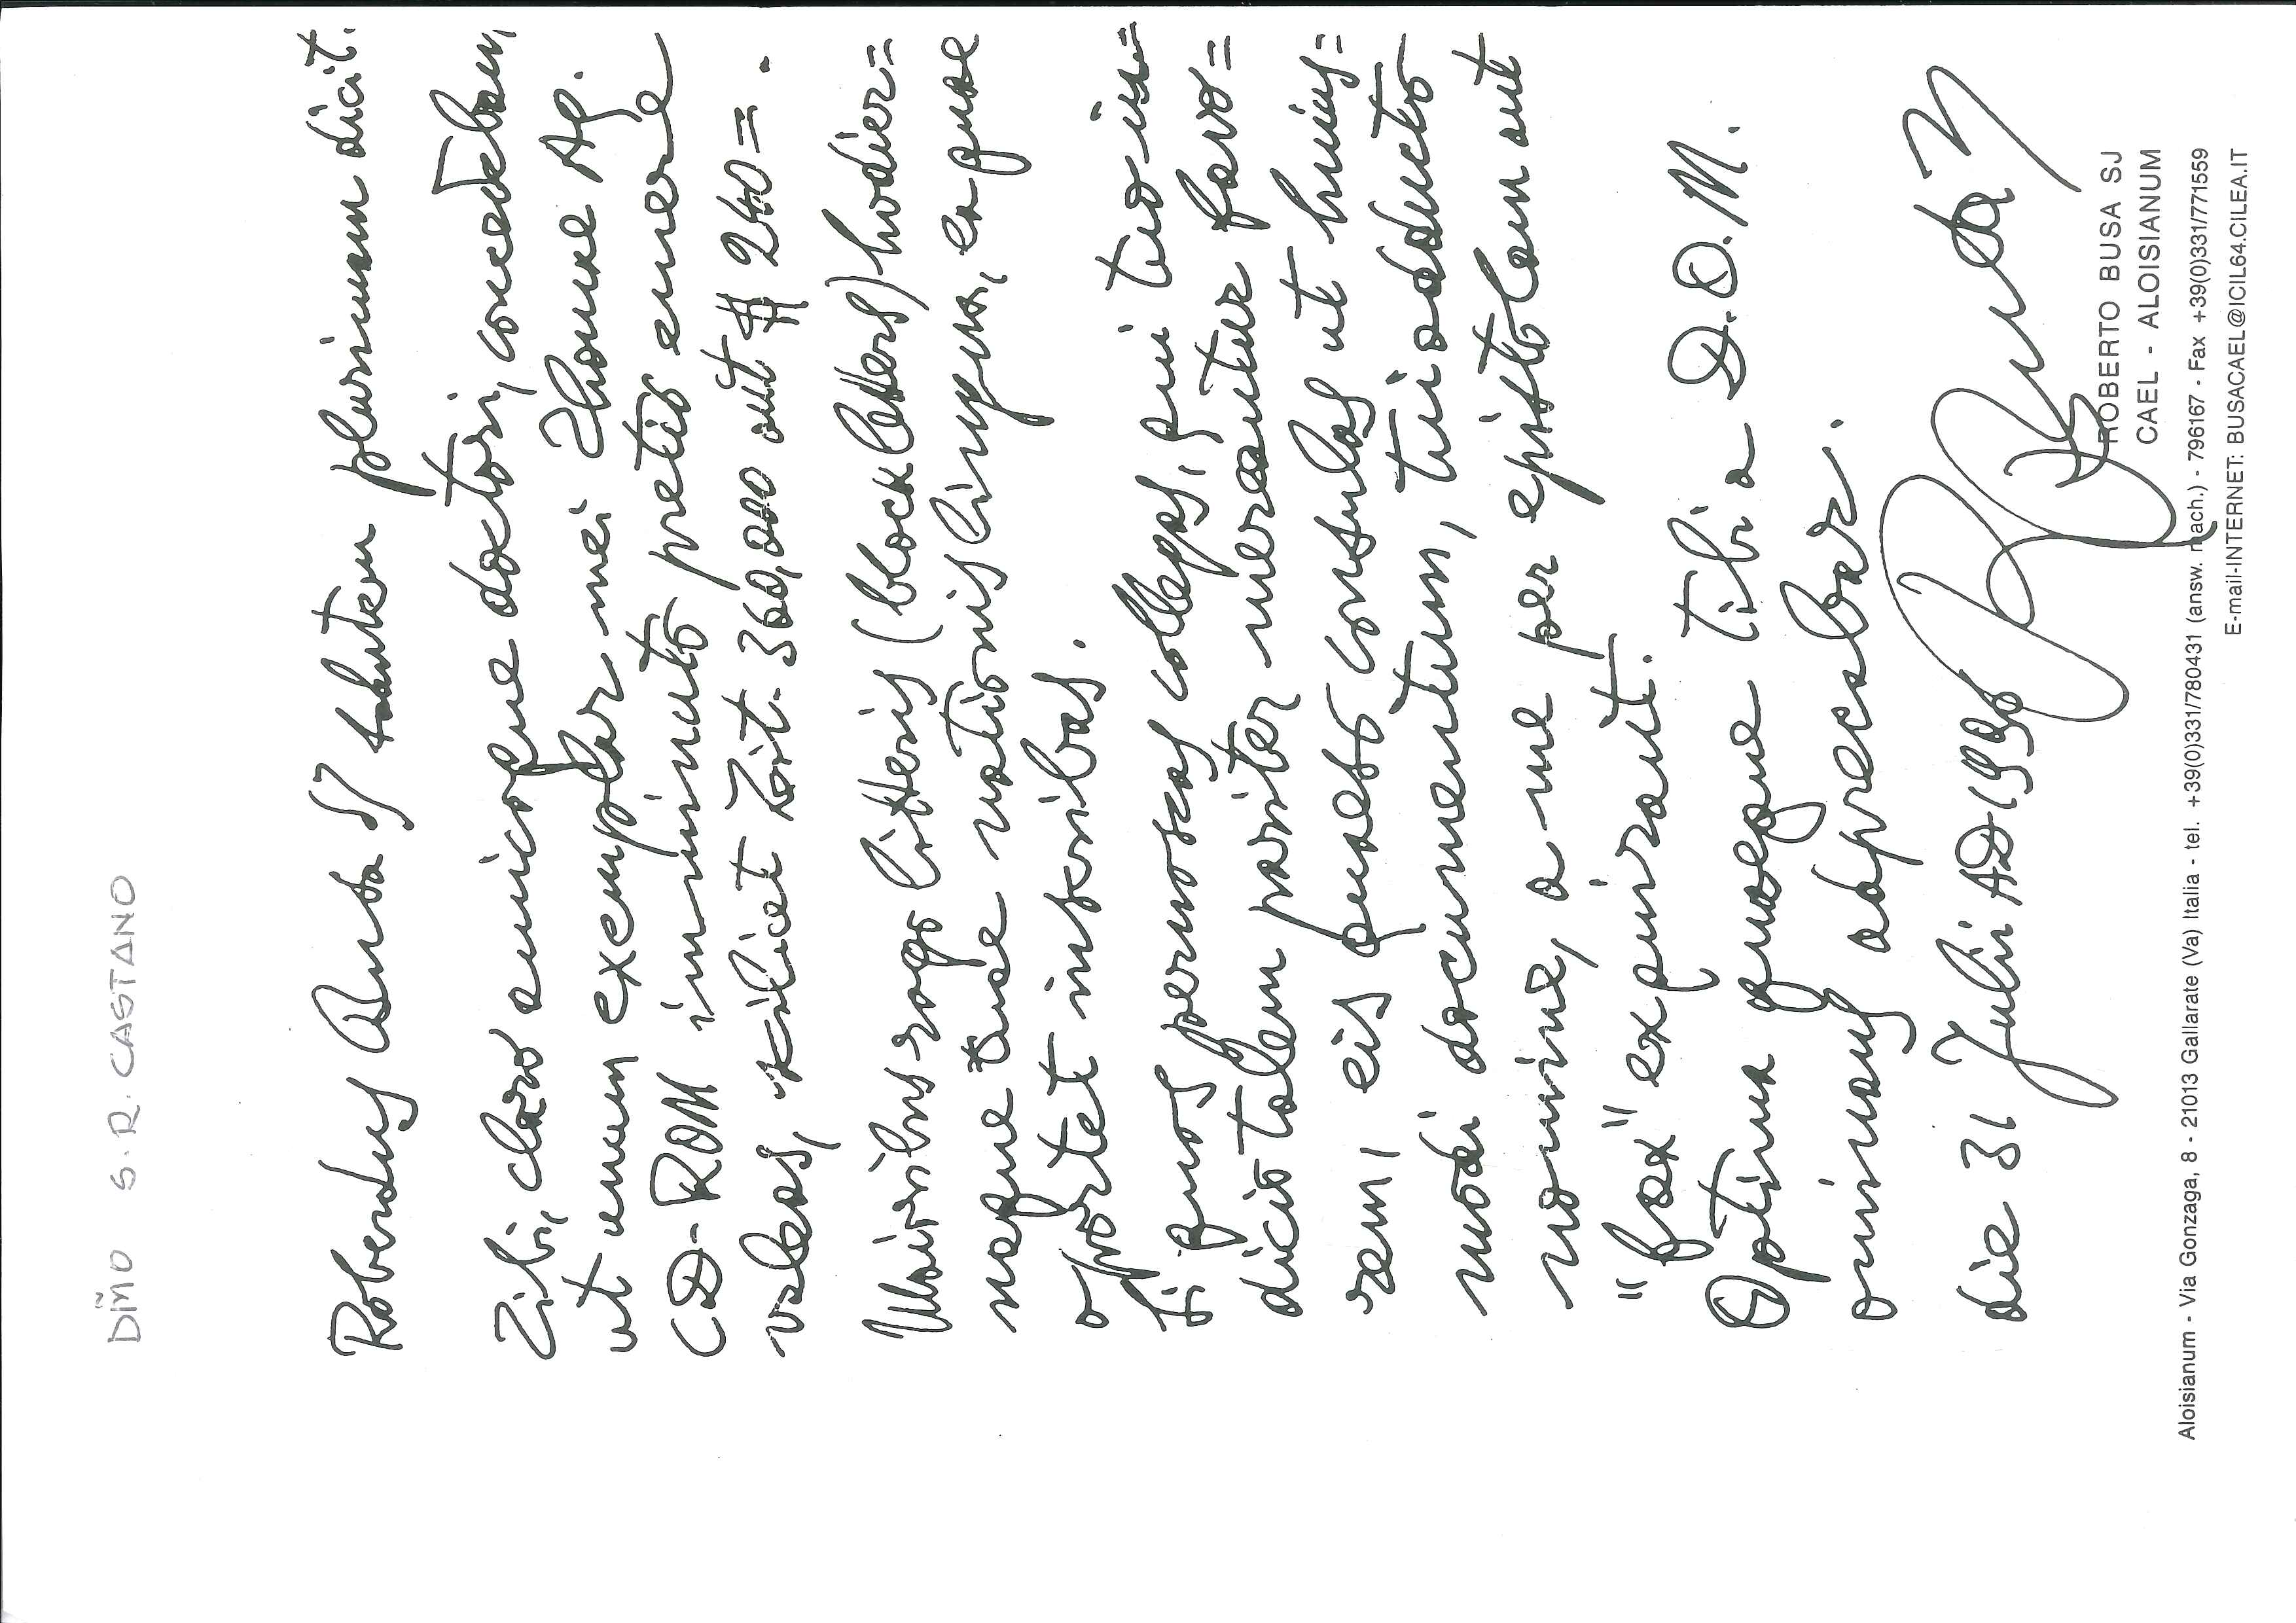 Dm̃o S. R. CASTANO
Robertus Busa SJ salutem plurimam dicit.
Tibi, claro amicoque doctori, concedebam,
ut unum exemplar mei Thomae Aq.
CD-ROM imminuto pretio emere
valeas, scilicet Lit. 360,000 aut $ 240=.
Maioribus rogo litteris (block letters) hodier=
naque tuae nationis lingua, ea quae
oportet inscribas.
Si quos pernoscas collegas, qui tuo iu=
dicio talem pariter mereantur favo=
rem, eis quaeso consulas ut huius=
modi documentum, tui adducto
nomine, a me per epistolam aut
"fax" exquirant.
Optima quaeque tibi a D.O.M.
ominans adprecabar.
die 31 Julii AD 1996 R Busa SJ
ROBERTO BUSA SJ
CAEL - ALOISIANUM
Aloisianum - Via Gonzaga, 8 - 21013 Gallarate (Va) Italia - tel. +39(0)331/780431 (answ. mach.) - 796167 - Fax +39(0)331/771559
E-mail-INTERNET: BUSACAEL@ICIL64.CILEA.IT